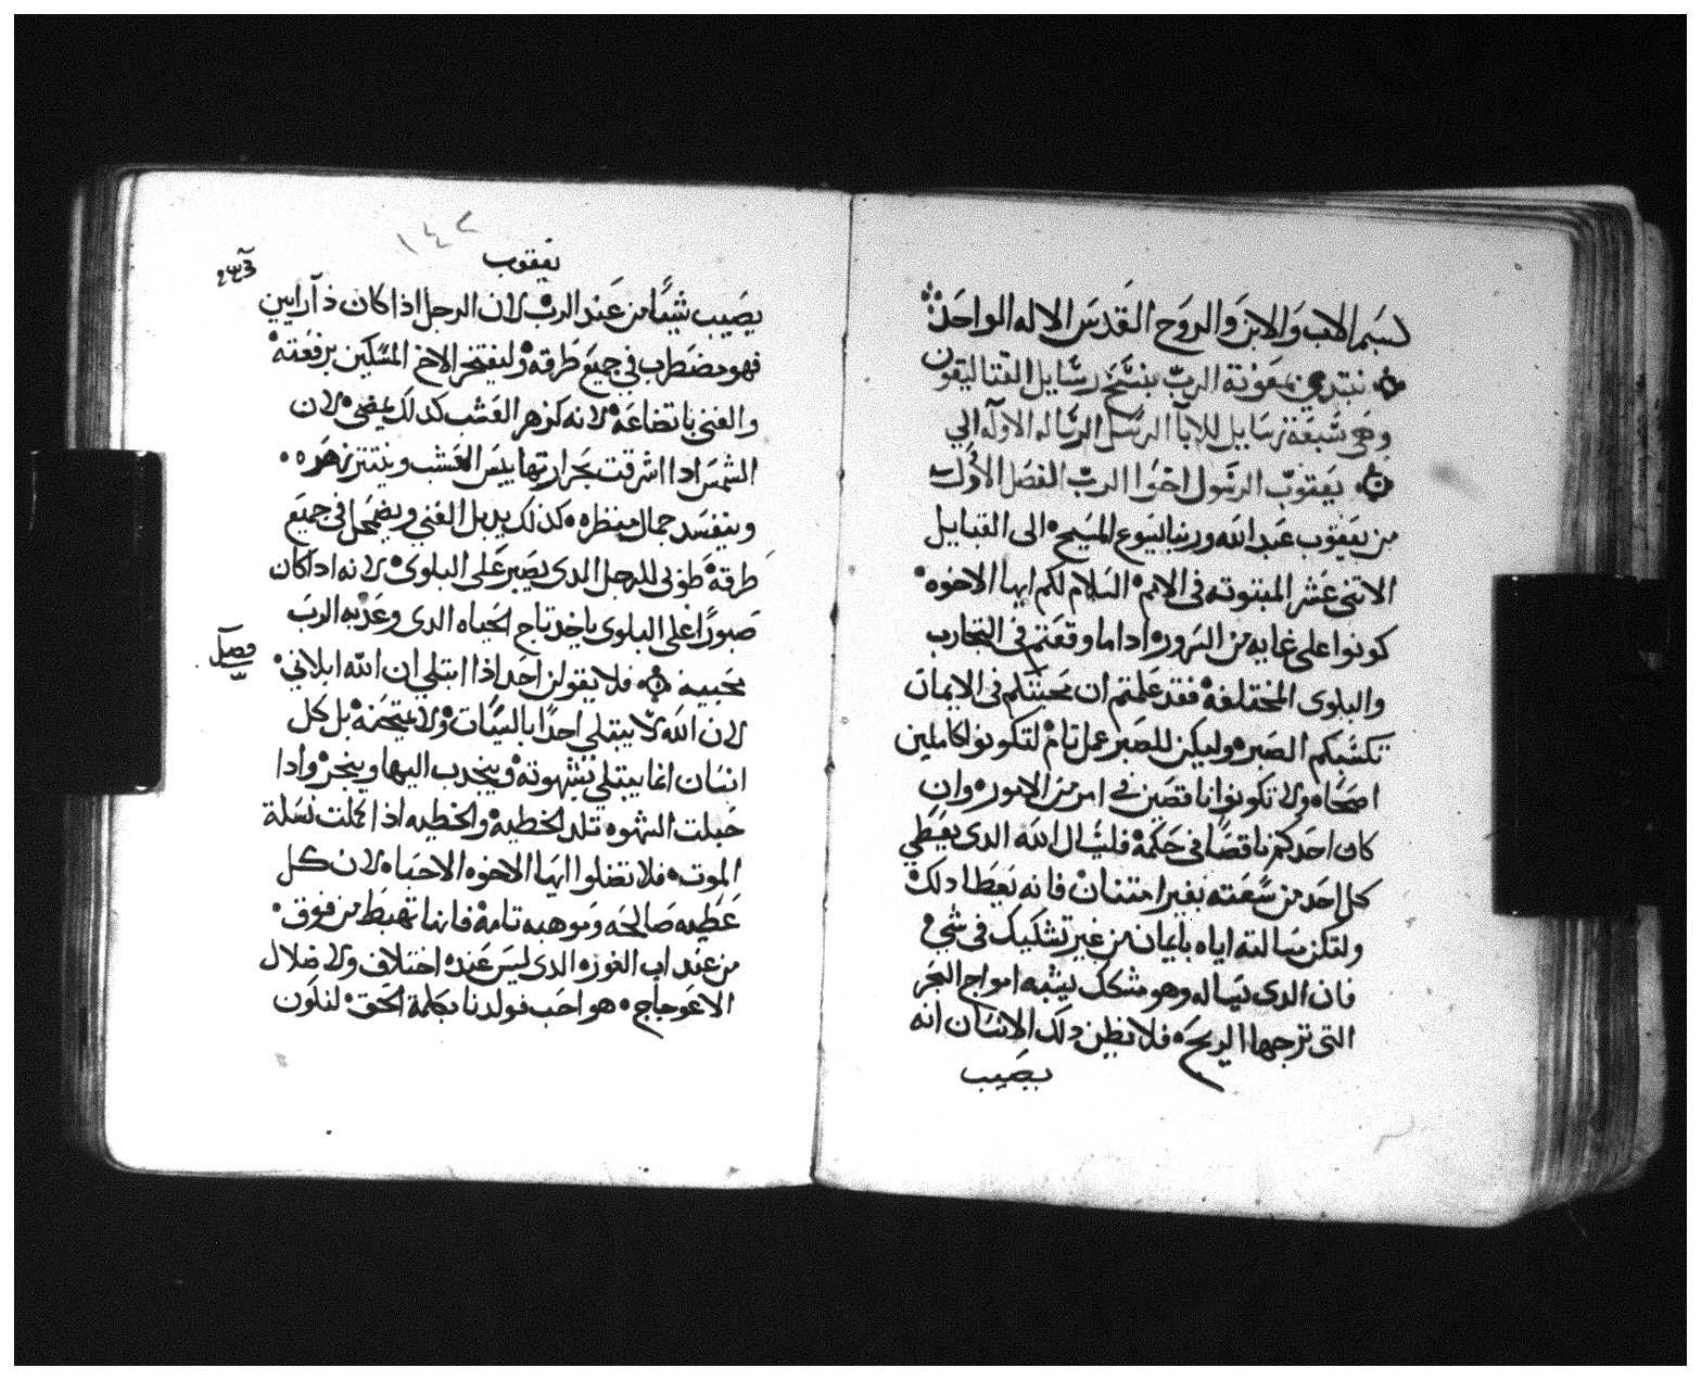 بسم الاب والابن والروح القدس الاله الواحد
نبتدي بمعونة الرب بنسخ رسايل القتاليقون
وهى سبعة رسايل للابآ الرسل الرساله الاوله الي
يعقوب الرسول اخوا الرب الفصل الأول
من يعقوب عبد الله وربنا يسوع المسيح الى القبايل
الاتنى عشر المبتوته فى الامم السلام لكم ايها الاخوه
كونوا على غايه من السرور اداما وقعتم فى التجارب
والبلوى المختلفة فقد علمتم ان محبتكم فى الايمان
تكسبكم الصبر وليكن للصبر عمل تام لتكونوا كاملين
اصحاه ولا تكونوا ناقصين في امر من الامور وان
كان احدكم ناقصًا فى حكمة فليسال الله الدى يعطي
كل احد من سعته بغير امتنان فانه يعطا دلك
ولتكن مسالته اياه بايمان من غير تشكيك فى شي
فان الدى يساله وهو مشكك يشبه امواج البحر
التى تزجها الريح فلا يظن دلك الانسان انه
يصيب
١٤٢
يعقوب
يصيب شيًا من عند الرب لان الرجل اذا كان ذا رايين
فهو مضطرب في جميع طرقه وليفتخر الاخ المسكين برفعته
والغني باتضاعه لانه كزهر العشب كدلك يمضى لان
الشمس ادا اشرقت بحرارتها يبس العشب وينتتر زهره
وينفسد جمال منظره كذلك يدبل الغني ويضمحل في جميع
طرقه طوبى للرجل الدى يصبر على البلوى لانه ادا كان
صبورًا على البلوى ياخد تاج الحياه الدى وعد به الرب
فصل
محبيه فلا يقولن احد اذا ابتلي ان الله ابلاني
لان الله لا يبتلي احدًا بالسيات ولا يمتحنه بل كل
انسان انما يبتلي بشهوته وينجدب اليها وينجر وادا
حبلت الشهوه تلد الخطيه والخطيه اذا كملت نسلة
الموت فلا تضلوا ايها الاخوه الاحباه لان كل
عطيه صالحه وموهبه تامة فانها تهبط من فوق
من عند اب الدى ليس عنده اختلاف ولا ضلال
الاعوجاج هو احب فولدنا بكلمة الحق لنكون